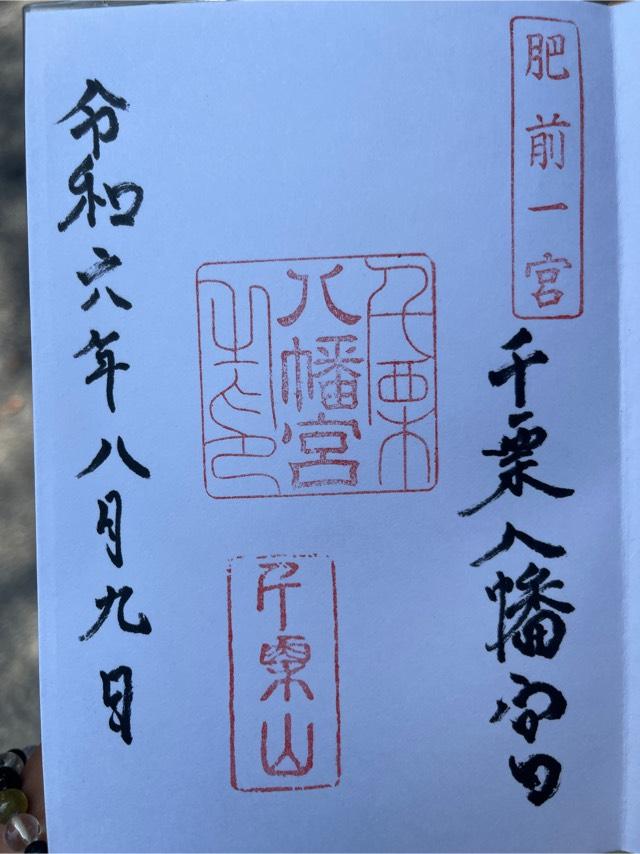 肥前一宮
千栗八幡宮
千栗八幡宮之印
千栗山
令和六年八月九日